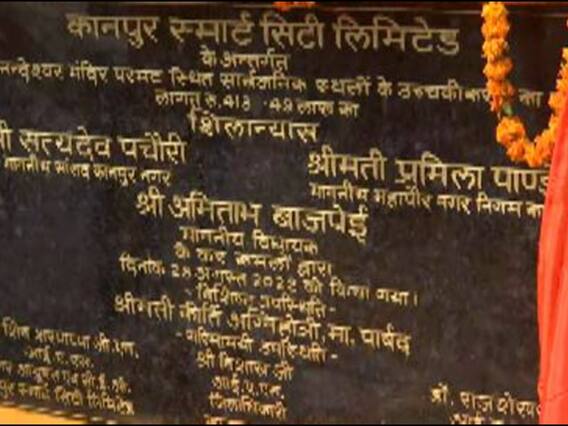 कानपुर स्मार्ट सिटी लिमिटेड
के अन्तर्गत
नन्देश्वर मंदिर परमट स्थित सार्वजनिक स्थलों के उच्चीकरण का
लागत रु. 413.49 लाख का
शिलान्यास
श्री सत्यदेव पचौरी
माननीय सांसद कानपुर नगर
श्रीमती प्रमिला पाण्डे
माननीय महापौर नगर निगम का
श्री अमिताभ बाजपेई
माननीय विधायक
के कर कमलों द्वारा
दिनांक 28 अगस्त को किया गया।
-विशिष्ट उपस्थिति-
श्रीमती कीर्ति अग्निहोत्री, मा. पार्षद
-गरिमामयी उपस्थिति-
जी.एन.
श्री विशाख जी
आई.ए.एस.
जिलाधिकारी
स्मार्ट सिटी लिमिटेड
डॉ. राजशेखर